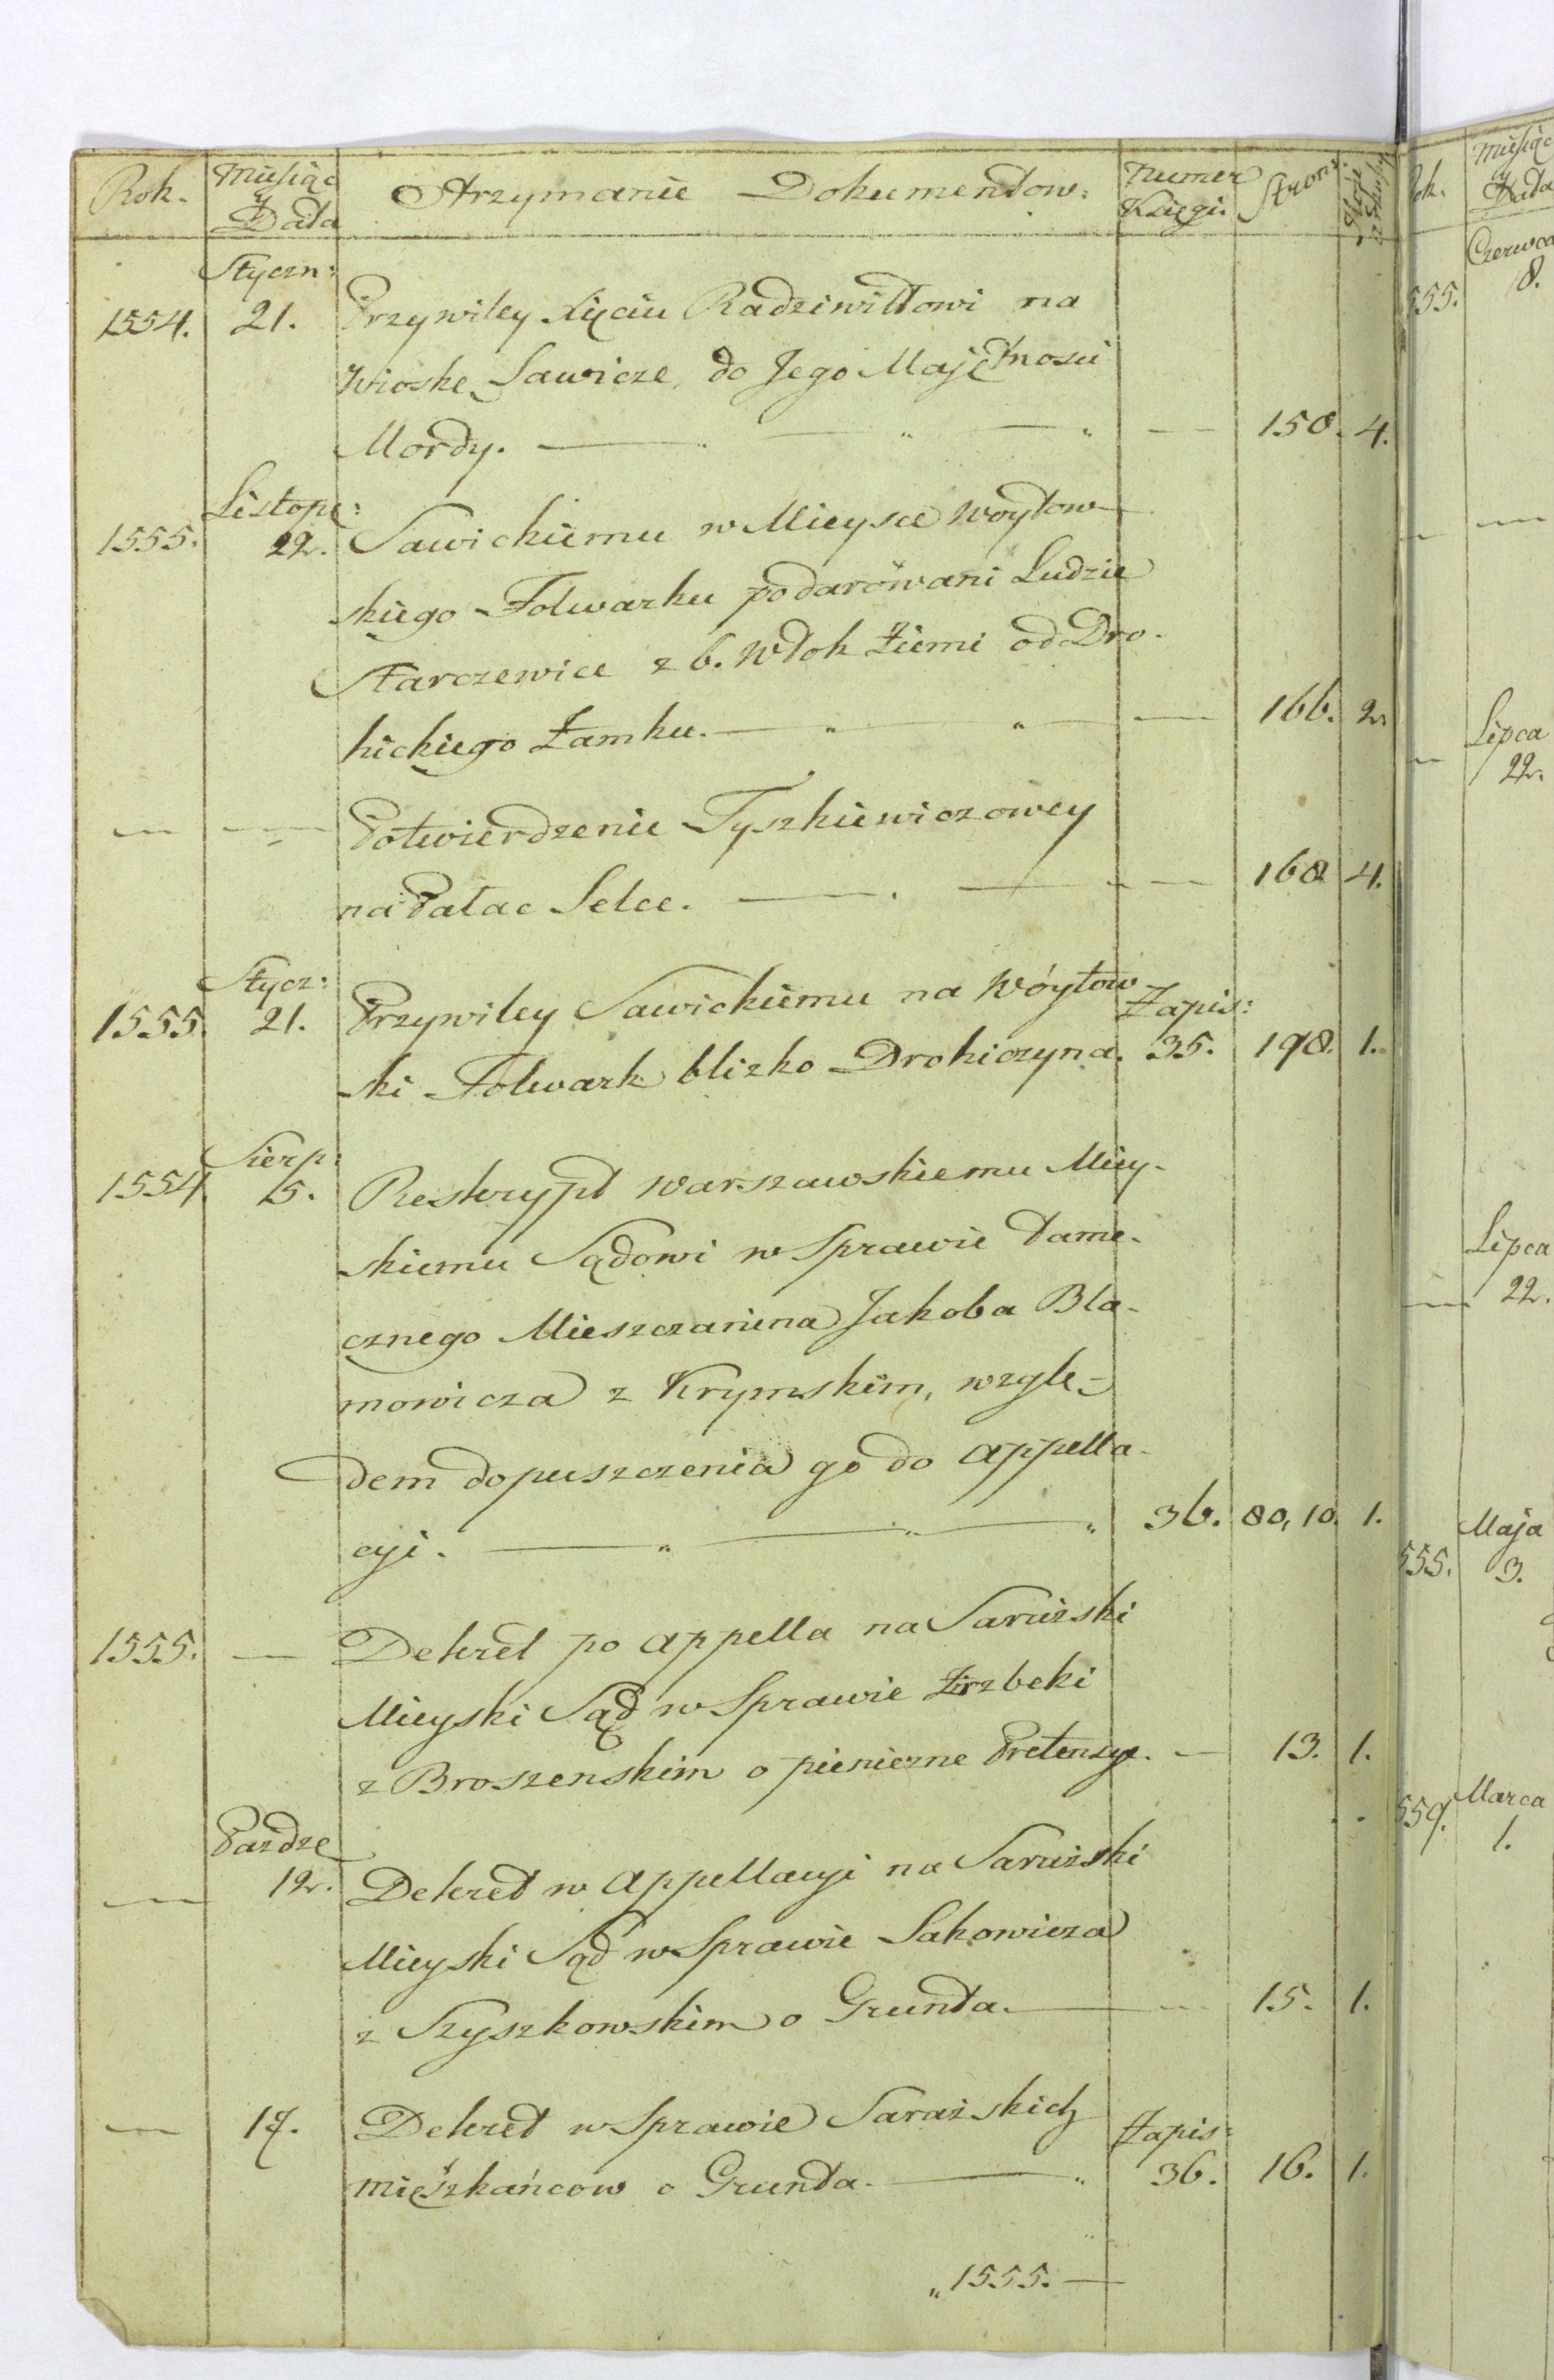 Rok. Miesiąc y Data Otrzymanie Dokumentow: Numer Księgi. Stroni:
Styczn:
1554. 21. Przywiley Xięciu Radziwiłłowi na
Wioskę Sawicze, do Jego Majętnosci
Mordy. — „ — „ — „ — 158. 4.
Listop:
1555. 22. Sawickiemu w Mieysce Woytow-
skiego Folwarku podarowani Ludzie
Starczewice z 6. Włok Ziemi od Dro-
hickiego Zamku. — „ — „ — 166. 2.
— — Potwierdzenie Tyszkiewiczowey
na Pałac Selce. — . — 168. 4.
Stycz:
1555. 21. Przywiley Sawickiemu na Wóytow- Zapis:
ski Folwark blizko Drohiczyna. 35. 198. 1.
Sierp:
1554. 15. Reskrypt Warszawskiemu Miey-
skiemu Sądowi w Sprawie tame-
cznego Mieszczanina Jakoba Bla-
mowicza z Krymskim, wzglę-
dem dopuszczenia go do appella-
cyi. — „ — „ — „ 36. 80, 10. 1.
1555. — Dekret po appella na Sarazski
Mieyski Sąd w Sprawie Zrzbeki
z Broszenskim o pieniezne Pretensye. — 13. 1.
Pazdze
— 12. Dekret w appellacyi na Sarazski
Mieyski Sąd w Sprawie Sakowicza
z Szyszkowskim o Grunta. — 15. 1.
— 17. Dekret w Sprawie Sarazskich Zapis:
mieszkańcow o Grunta. — „ 36. 16. 1.
„1555. —
Rok. Miesiąc y Data
Czerwca
555. 8.
— —
Lipca
— 22.
Lipca
— 22.
Maja
555. 3.
Marca
559. 1.